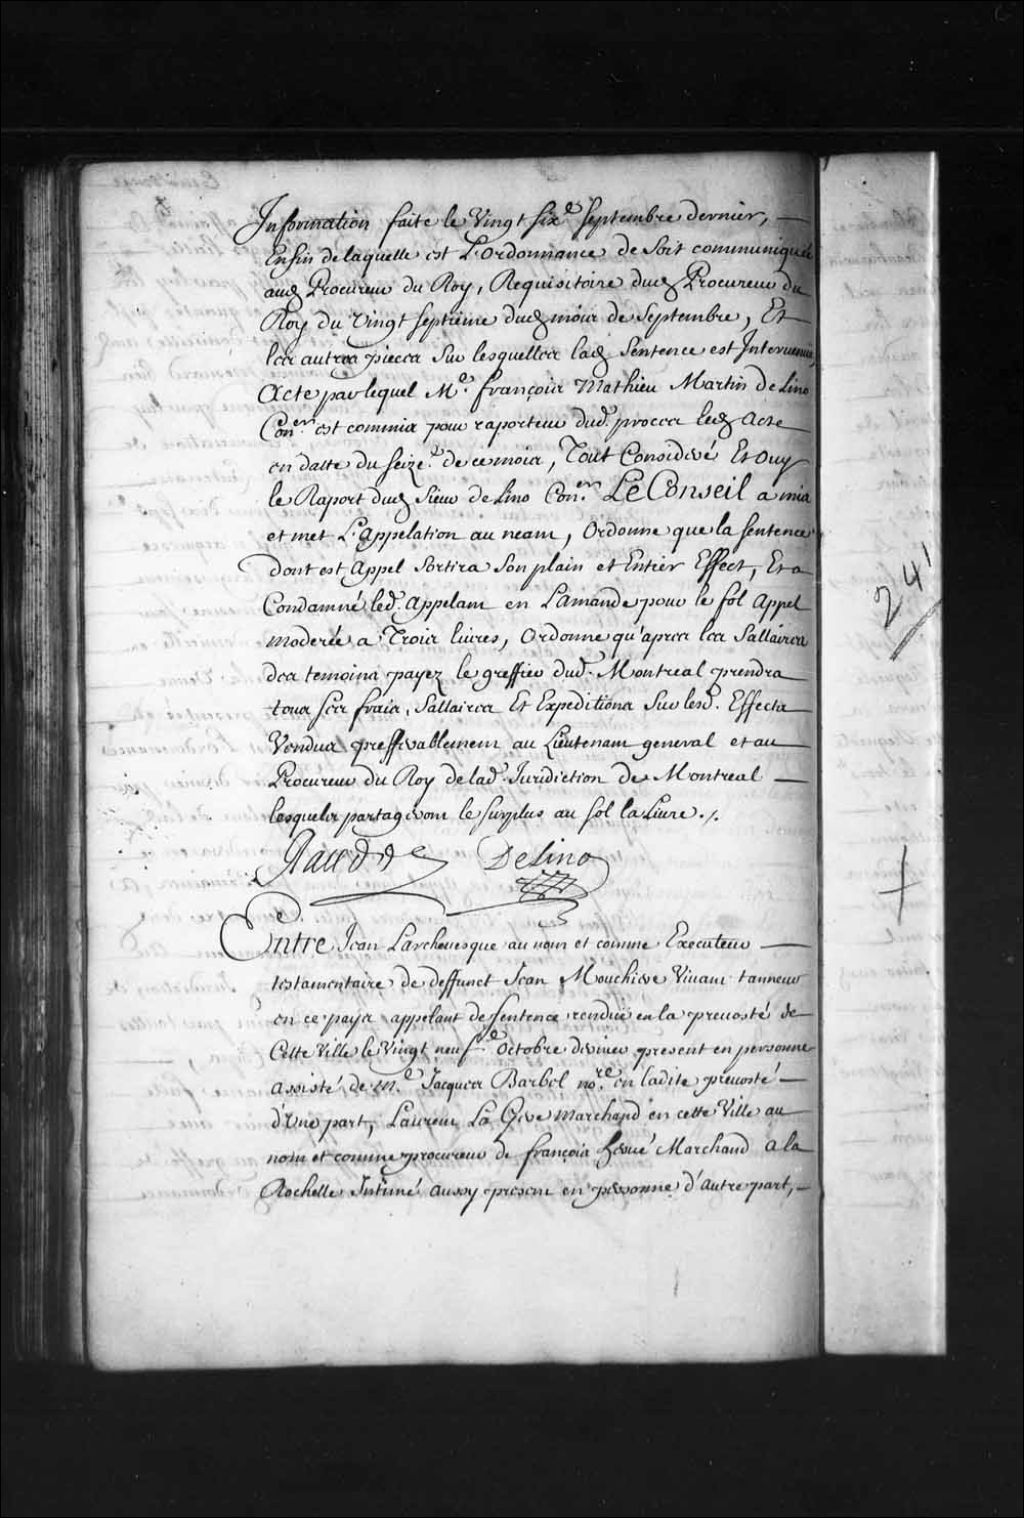 Information faite le Vingt six.e Septembre dernier, —
Enfin de laquelle est L'ordonnance de Soit communiquée
aud Procureur du Roy, Requisitoire dud Procureur du
Roy du Vingt septieme dud mois de Septembre, Et —
les autres pieces Sur lesquelles lad Sentence est Intervenuë,
Acte par lequel M.e françois Mathieu Martin de Lino
Con.er est commis pour raporteur dud. proces led Acte
en datte du seize.e de ce mois, Tout Consideré Et Ouy
le Raport dud Sieur de Lino Con.er Le Conseil a mis
et met L'appelation au neant, Ordonne que la sentence
dont est Appel Sortira Son plain et Entier Effect, Et a
Condamné led. Appelant en L'amande pour le fol Appel
moderée a Trois livres, Ordonne qu'apres les Sallaires
des temoins payez le greffier dud. Montreal prendra
tous ses frais, Sallaires Et Expeditions Sur lesd. Effects
Vendus prefferablement au Lieutenant general et au
Procureur du Roy de lad. Juridiction de Montreal —
lesquels partageront le surplus au sol la Livre ./.
Raudot DeLino
Entre Jean Larchevesque au nom et comme Executeur —
testamentaire de deffunct Jean Mouchiere Vivant tanneur
en ce pays appelant de sentence rendüe en la prevosté de
Cette Ville le Vingt neuf.e Octobre dernier present en personne
assisté de M.e Jacques Barbel no.re en ladite prevosté —
d'Une part, Laurent La Give marchand en cette Ville au
nom et comme procureur de françois hervé Marchand a la
Rochelle Intimé aussy present en personne d'autre part, —
241